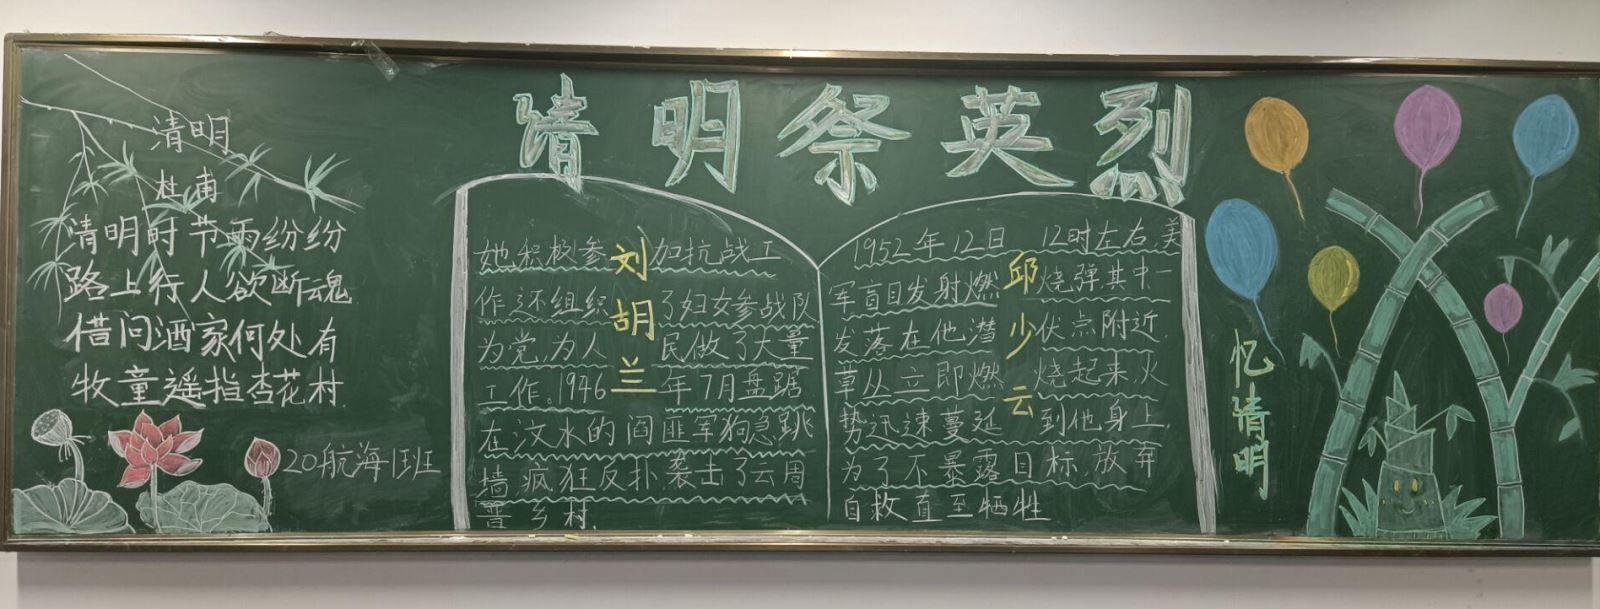 清明祭英烈
清明
杜甫
清明时节雨纷纷
路上行人欲断魂
借问酒家何处有
牧童遥指杏花村.
20航海1班
刘胡兰
她,积极参加抗战工
作,还组织了妇女参战队
为党,为人民做了大量
工作。1946年7月盘踞
在汶水的阎匪军狗急跳
墙,疯狂反扑袭击了云周
晋乡村.
邱少云
1952年12日 12时左右,美
军盲目发射燃烧弹其中一
发落在他潜伏点附近,
草丛立即燃烧起来,火
势迅速蔓延到他身上,
为了不暴露目标,放弃
自救直至牺牲
忆清明